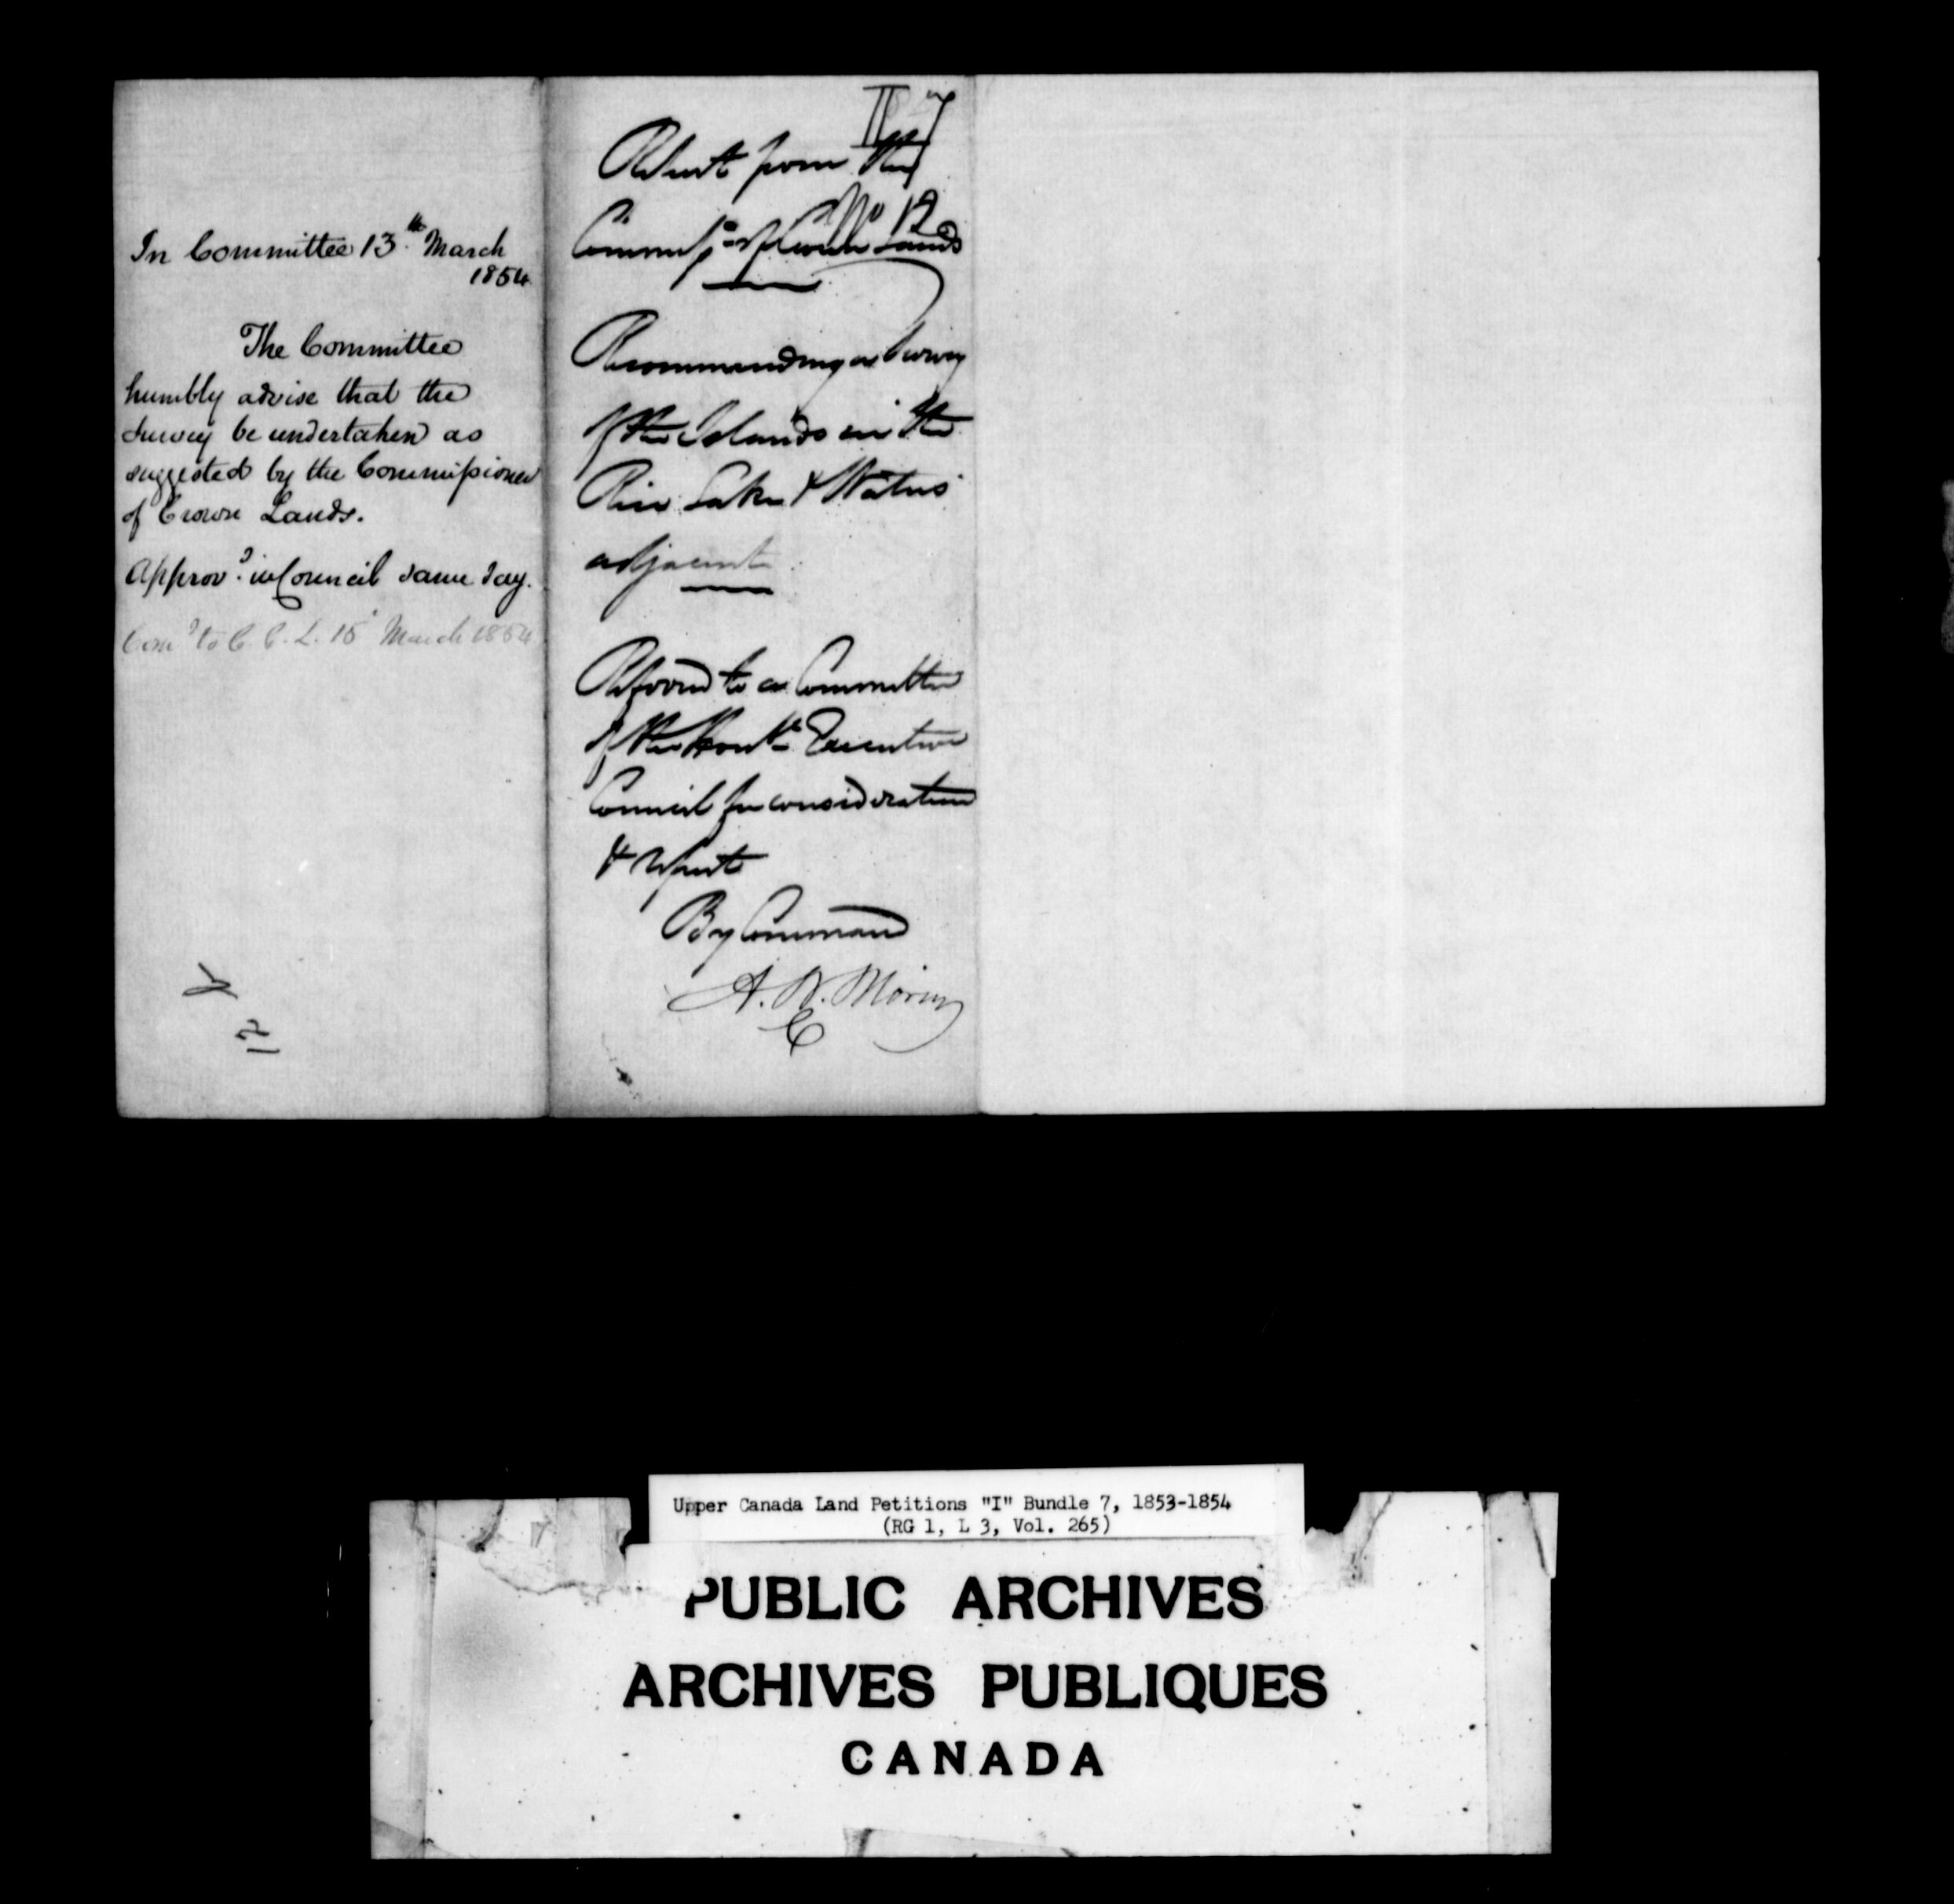 In Committee 13th March
1854
The Committee
humbly advise that the
Survey be undertaken as
suggested by the Commissioner
of Crown Lands.
Approvd. in Council same day.
Comd to C. C. L. 15 March 1854
I 7
Report from the
No 12
Commissr of Crown Lands
Recommending a Survey
of the Islands in the
Rice Lake & Waters
adjacent
Referred to a Committee
of the Honble Executive
Council for consideration
& report
By Command
A. N. Morin
12
Upper Canada Land Petitions "I" Bundle 7, 1853-1854
(RG 1, L 3, Vol. 265)
PUBLIC ARCHIVES
ARCHIVES PUBLIQUES
CANADA